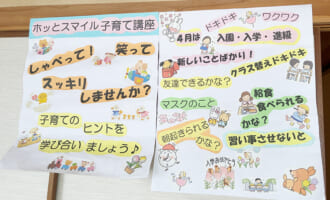 ホッとスマイル子育て講座
しゃべって！ 笑って
スッキリ
しませんか？
子育ての
ヒントを
学び合い ましょう♪
ドキドキ ワクワク
4月は 入園・入学・進級
新しいことばかり！
クラス替えドキドキ
友達できるかな？
マスクのこと
給食
食べられる
かな？
朝起きられる
かな？
習い事させないと